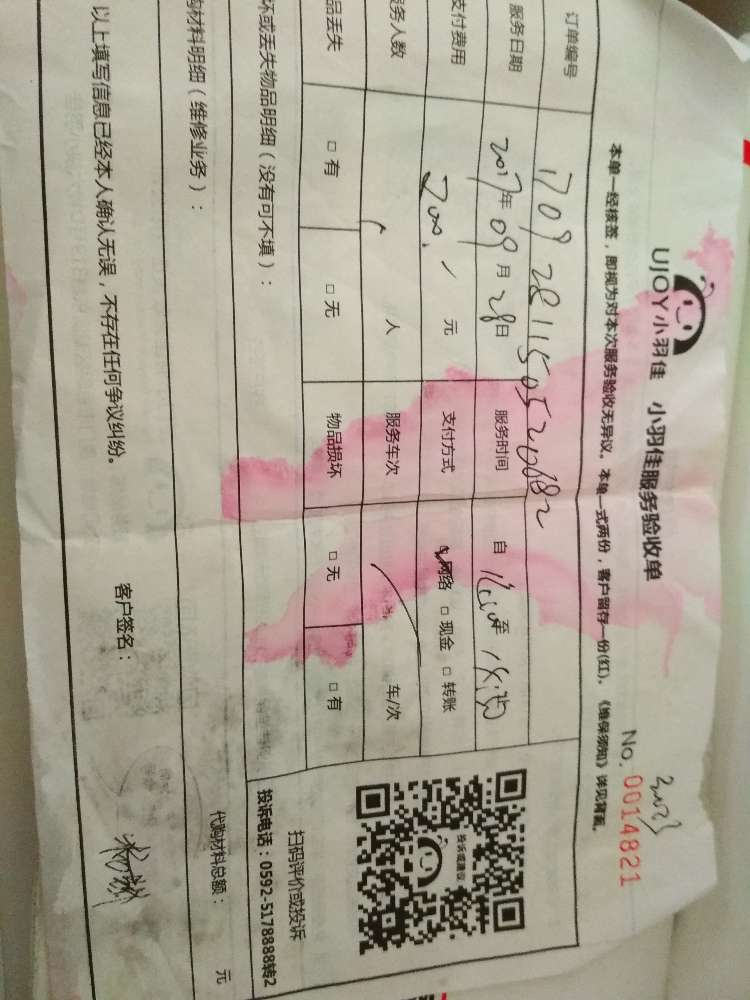 UJOY小羽佳 小羽佳服务验收单
No. 0014821
本单一经核签，即视为对本次服务验收无异议。本单一式两份，客户留存一份(红)。《维保须知》详见背面。
订单编号 170928115052068​2
服务日期 2017年09月28日 服务时间 自 至
支付费用 200. 元 支付方式 网络 □ 现金 □ 转账
服务人数 人 服务车次 车/次
品丢失 □ 有 □ 无 物品损坏 □ 无 □ 有
扫码评价或投诉
投诉电话：0592-5178888转2
投诉或建议
坏或丢失物品明细（没有可不填）：
购材料明细（维修业务）： 代购材料总额： 元
以上填写信息已经本人确认无误，不存在任何争议纠纷。 客户签名：